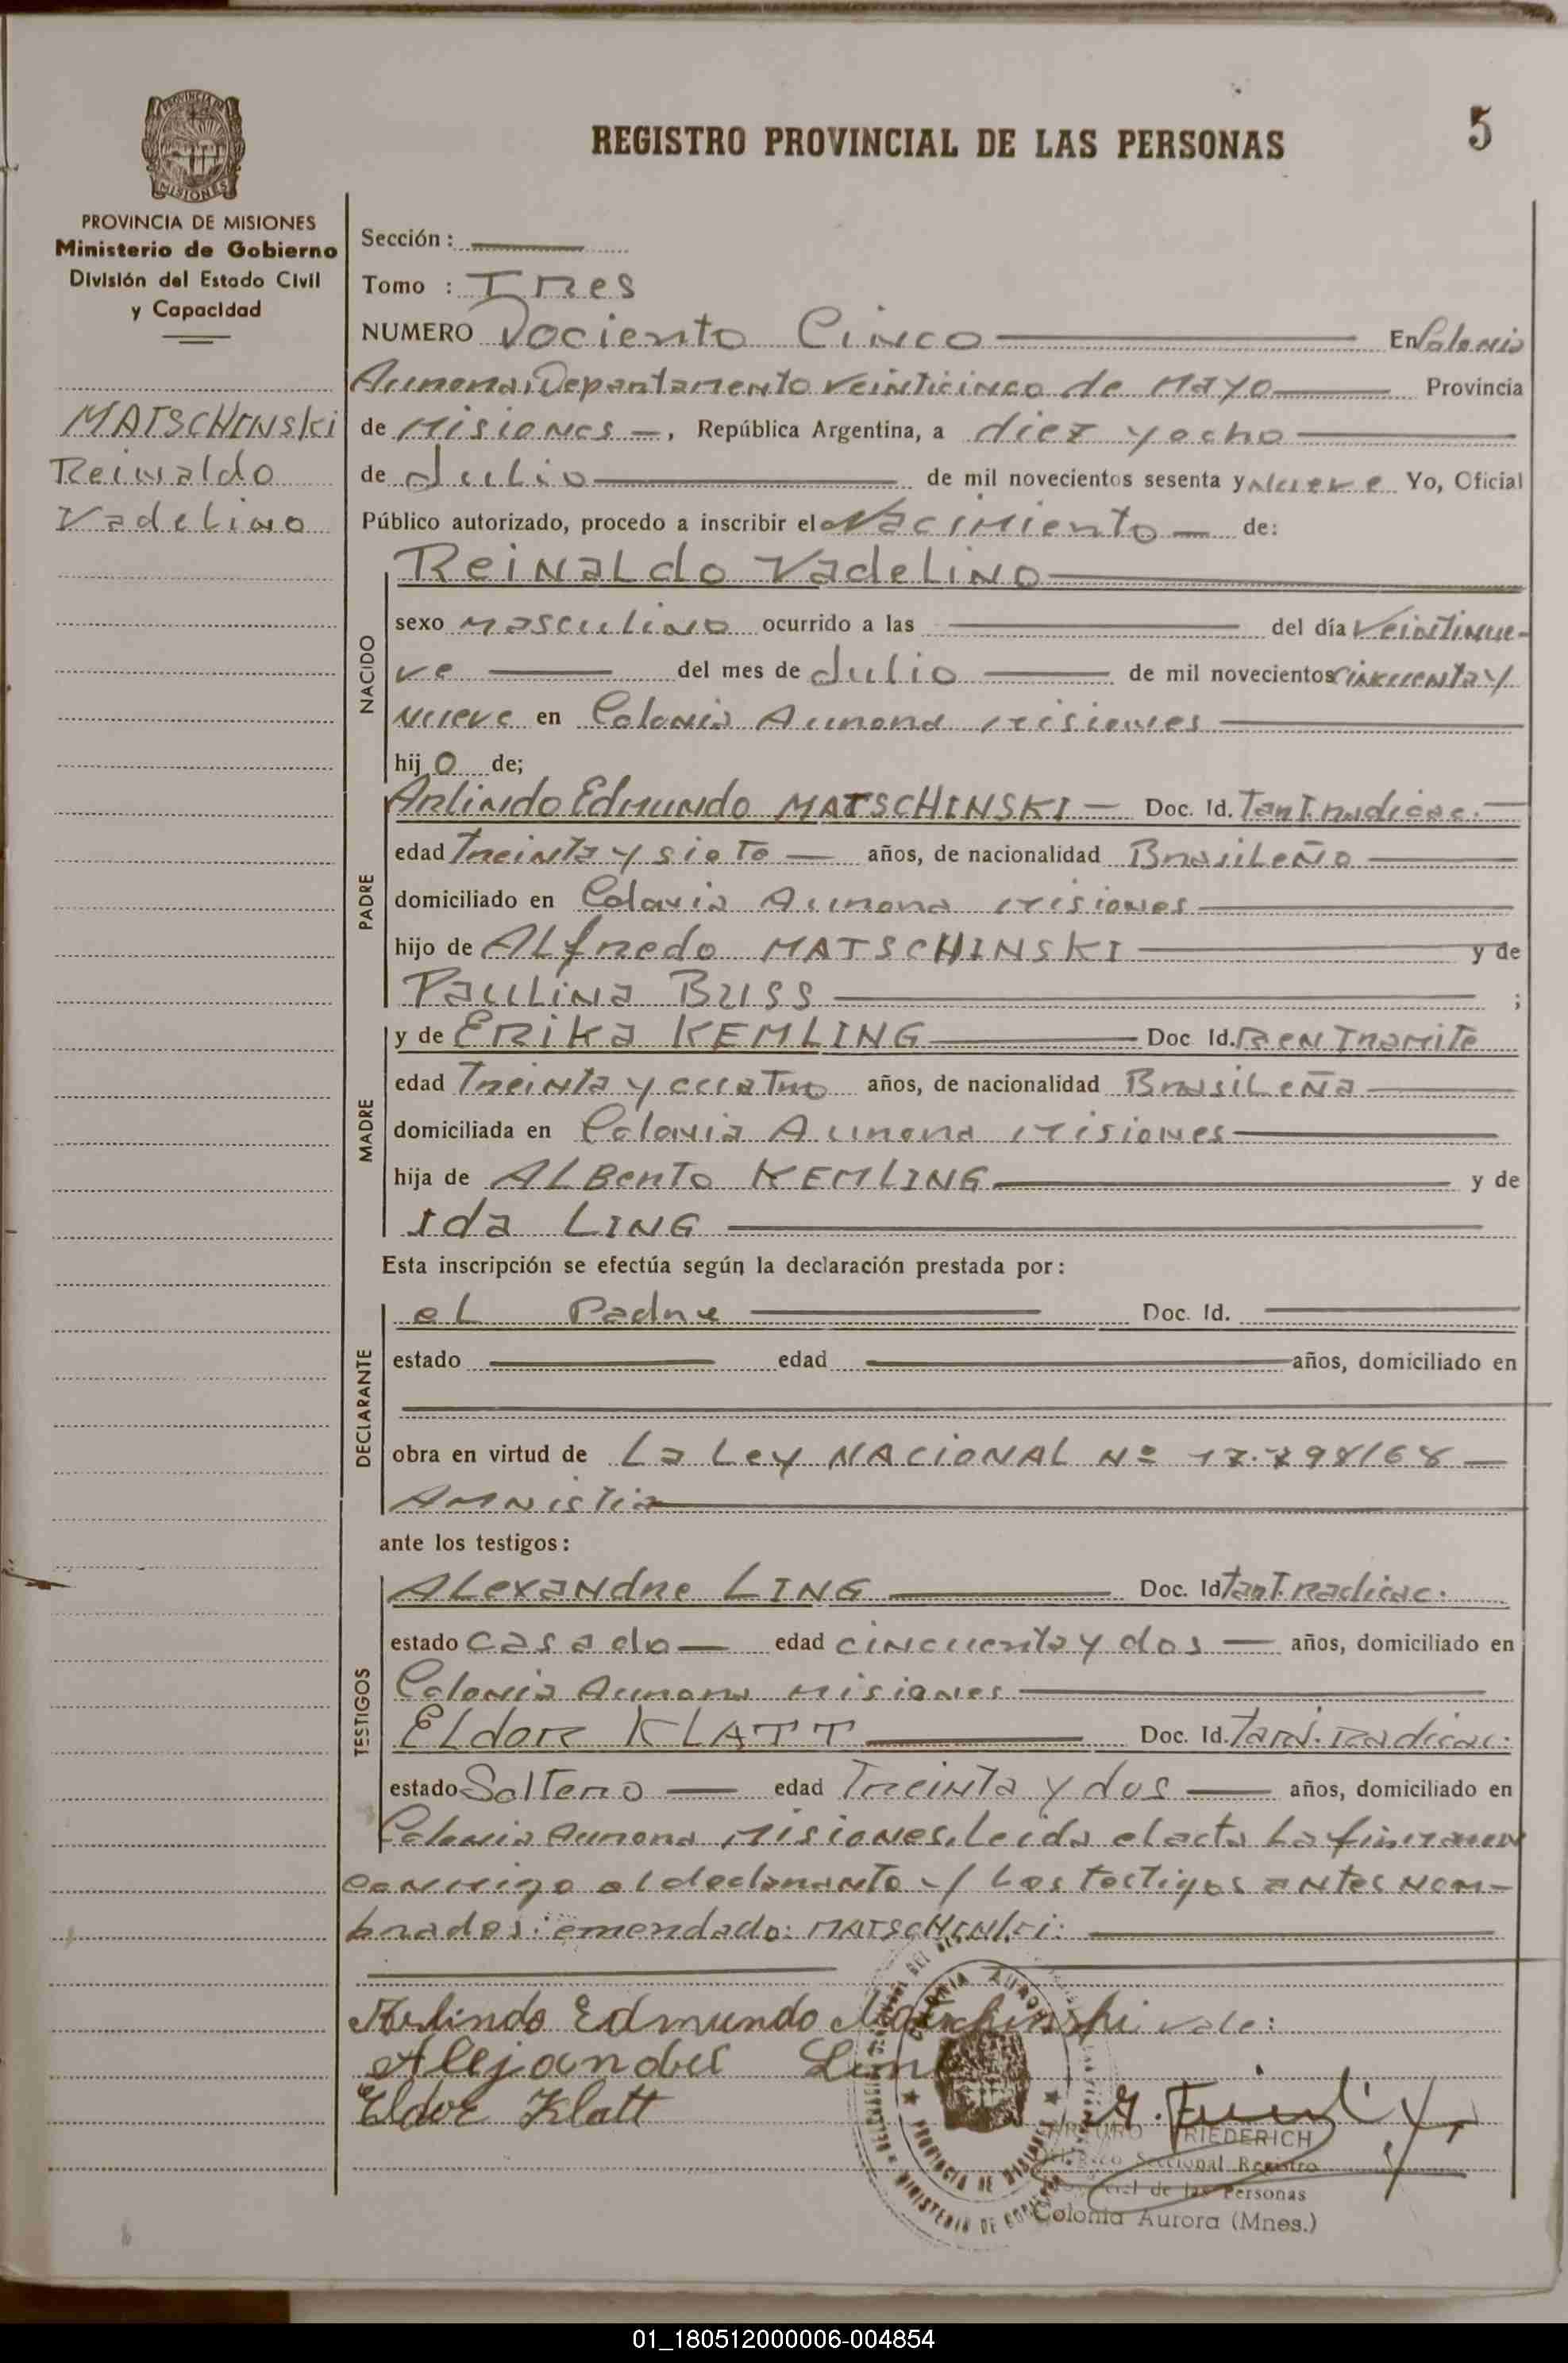 REGISTRO PROVINCIAL DE LAS PERSONAS
5
PROVINCIA DE MISIONES
Ministerio de Gobierno
División del Estado Civil
y Capacidad
MATSCHINSKI
Reinaldo
Vadelino
Sección :
Tomo : Tres
NUMERO Dociento Cinco En Colonia
Aurora, Departamento Veinticinco de Mayo Provincia
de Misiones —, República Argentina, a diez y ocho
de Julio de mil novecientos sesenta y nueve Yo, Oficial
Público autorizado, procedo a inscribir el Nacimiento — de:
Reinaldo Vadelino
NACIDO
sexo masculino ocurrido a las del día veintinue-
ve del mes de Julio de mil novecientos cincuenta y
nueve en Colonia Aurora Misiones
hijo de;
PADRE
Arlindo Edmundo MATSCHINSKI — Doc. Id. Tart. radicac.
edad treinta y siete — años, de nacionalidad Brasileño
domiciliado en Colonia Aurora Misiones
hijo de Alfredo MATSCHINSKI y de
Paulina BUSS ;
MADRE
y de Erika KEMLING Doc Id. R en Tramite
edad Treinta y cuatro años, de nacionalidad Brasileña
domiciliada en Colonia Aurora Misiones
hija de ALBerto KEMLING y de
Ida LING
Esta inscripción se efectúa según la declaración prestada por:
DECLARANTE
el Padre Doc. Id.
estado edad años, domiciliado en
obra en virtud de La Ley NACIONAL Nº 17.798/68 —
Amnistia
ante los testigos:
TESTIGOS
Alexandre LING Doc. Id Tart. radicac.
estado casado — edad cincuenta y dos — años, domiciliado en
Colonia Aurora Misiones
Eldor KLATT Doc. Id. Tarj. radicac.
estado Soltero — edad Treinta y dos — años, domiciliado en
Colonia Aurora Misiones. Leida el acta la firman
conmigo el declarante y los testigos antes nom-
brados: emendado: MATSCHINSKI:
Arlindo Edmundo Matschinski vale:
Alejander Ling
Eldor Klatt
COLONIA AURORA
PROVINCIA DE MISIONES
MINISTERIO DE GOBIERNO
ARTURO FRIEDERICH
Seccional Registro
de las Personas
Colonia Aurora (Mnes.)
01_180512000006-004854